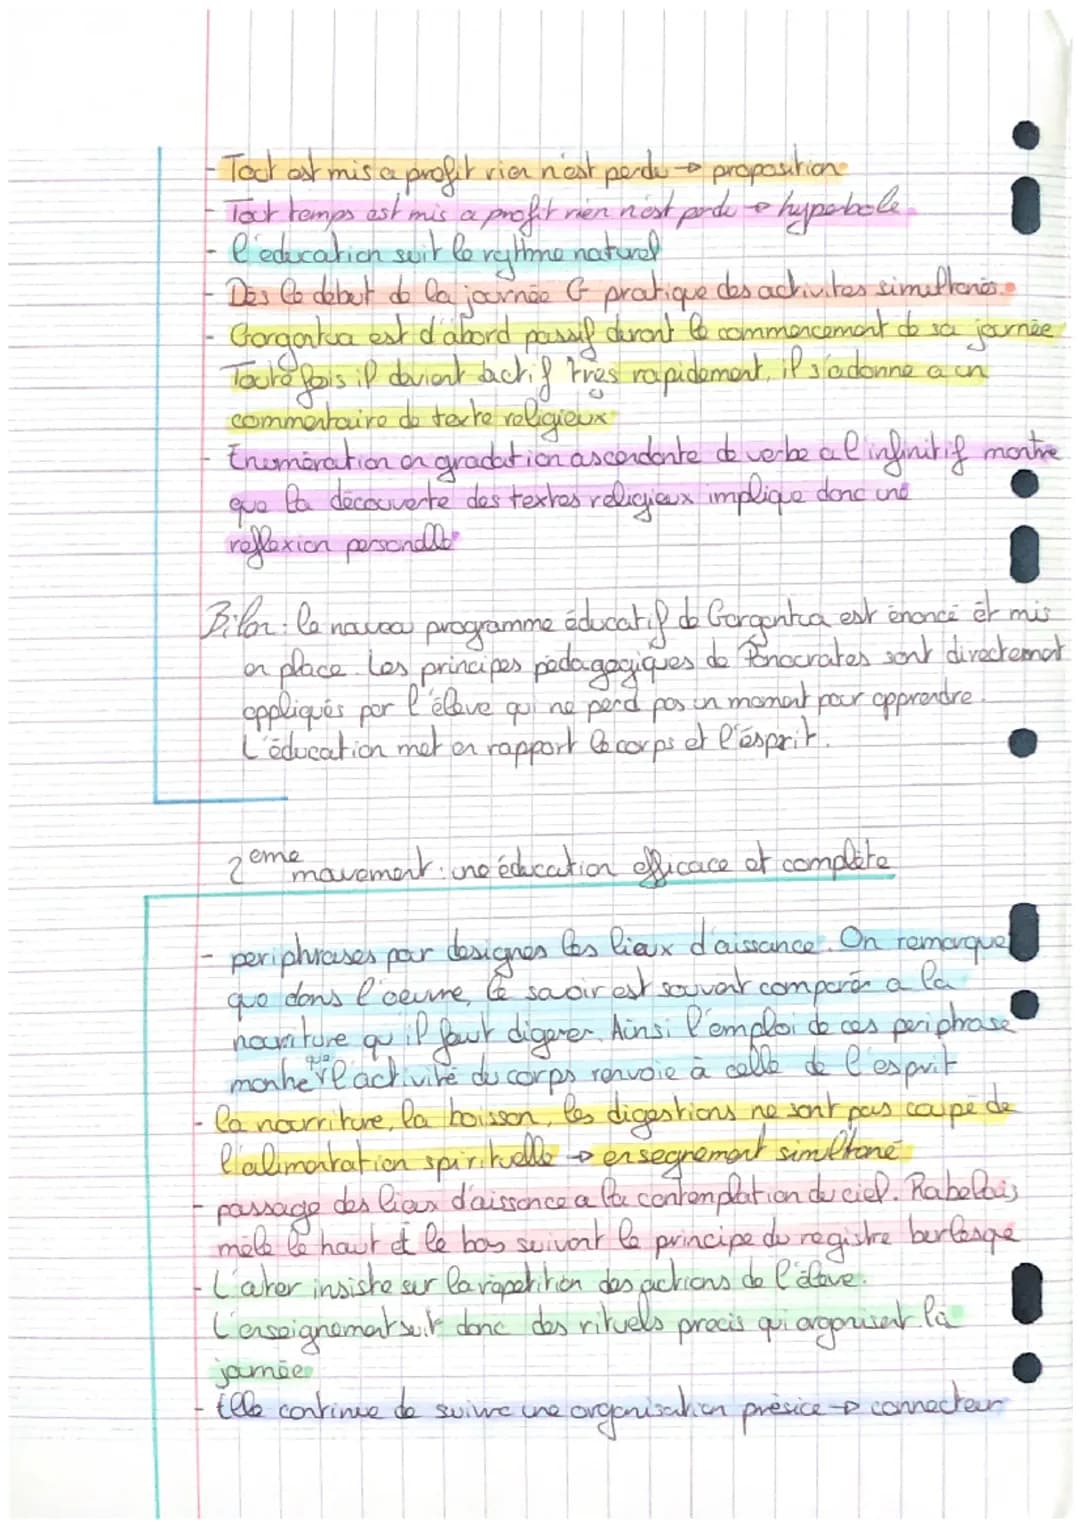 - Tout est mis a profit rien n'est perdu → proposition
- Tout temps est mis a profit rien n'est perdu → hyperbole.
- l'éducation suit le rythme naturel
- Dès le début de la journée G pratique des activites simultanés.
- Gargantua est d'abord passif durant le commencement de sa journée
Toute fois il devient actif très rapidement, il s'adonne a un
commentaire de texte religieux
- Enumération en gradation ascendante de verbe a l'infinitif montre
que la découverte des textes religieux implique donc une
réflexion personelle
Bilan : le nouveau programme éducatif de Gargantua est énoncé et mis
en place. Les principes pédagogiques de Ponocrates sont directement
appliqués par l'élève qui ne perd pas un moment pour apprendre.
L'éducation met en rapport le corps et l'esprit.
2eme mouvement : une éducation efficace et complète
- periphrases pour designer les lieux d'aissance. On remarque
que dans l'oeuvre, le savoir est souvent comparér a la
nourriture qu'il faut digerer. Ainsi l'emploi de ces periphrase
montre que l'activité du corps renvoie à celle de l'esprit
- la nourriture, la boisson, les digestions ne sont pas coupé de
l'alimentation spirituelle → enseignement simultané
- passage des lieux d'aissance a la contemplation du ciel. Rabelais
mêle le haut et le bas suivant le principe du registre burlesque
- L'auteur insiste sur la répétition des actions de l'élève.
L'enseignement suit donc des rituels precis qui organisent la
journée
- Elle continue de suivre une organisation présice → connecteur